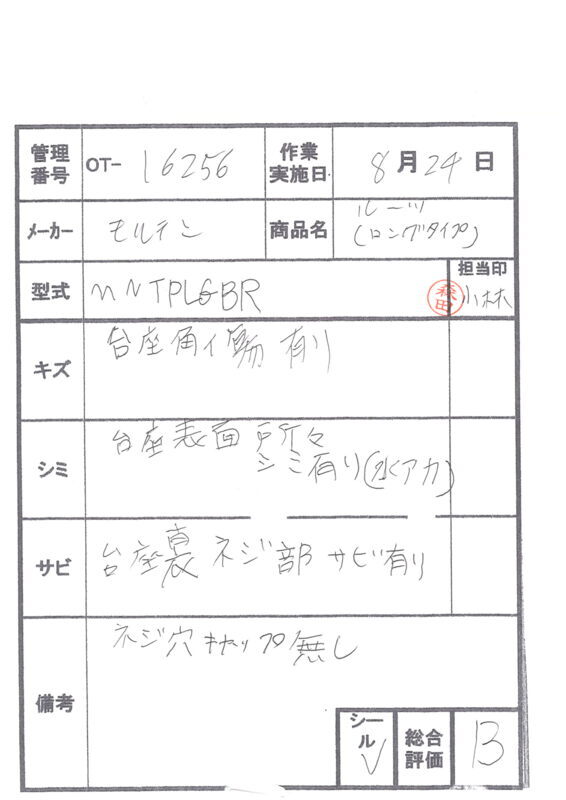 管理番号 OT- 16256 作業実施日 8月24日
メーカー モルテン 商品名 ルーツ
(ロングタイプ)
型式 MNTPLGBR 担当印
森田 小林
キズ 台座角イ傷有り
シミ 台座表面 所々
シミ有り(水アカ)
サビ 台座裏 ネジ部 サビ有り
備考 ネジ穴キャップ無し
シール ✓ 総合評価 B